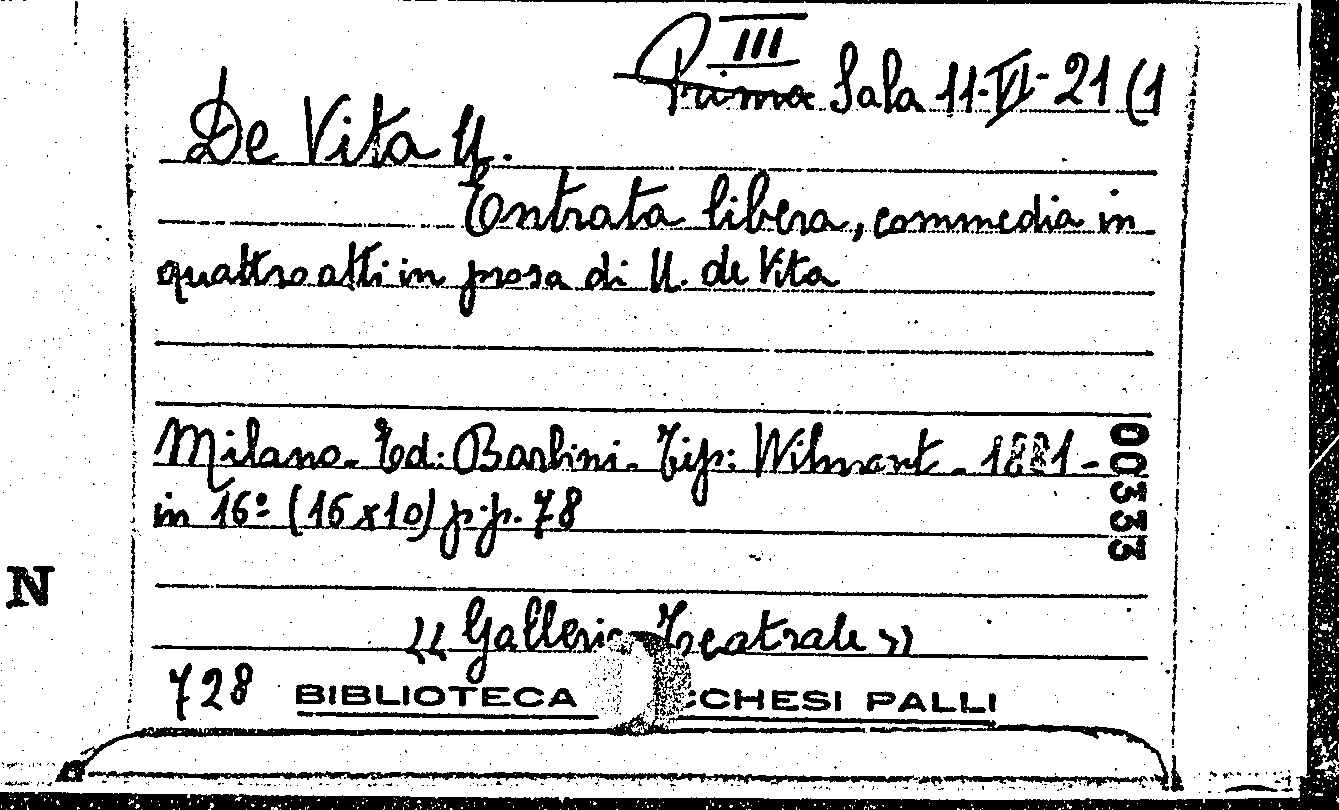 III
Prima Sala 11-VI-21 (1
De Vita U.
Entrata libera, commedia in
quattro atti in prosa di U. de Vita
Milano. Ed: Barbini. Tip: Wilmant. 1881-
in 16º (16x10) p.p. 78
00333
N
« Galleria Teatrale »
728 BIBLIOTECA CCHESI PALLI